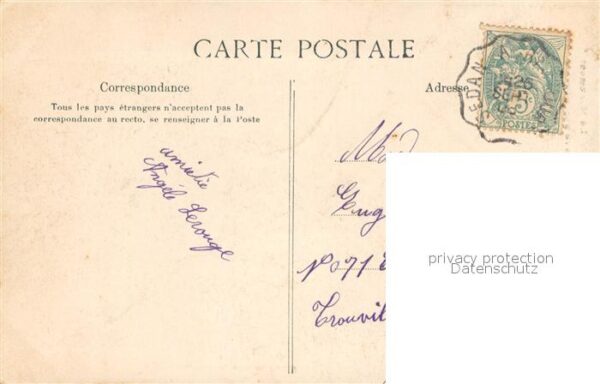 CARTE POSTALE
Correspondance
Tous les pays étrangers n'acceptent pas la
correspondance au recto, se renseigner à la Poste
amitié
Angèle Lerouge
Adresse
SEDAN
25
SEPT
POSTES
Mad
Eug
N° 71
Trouvil
privacy protection
Datenschutz